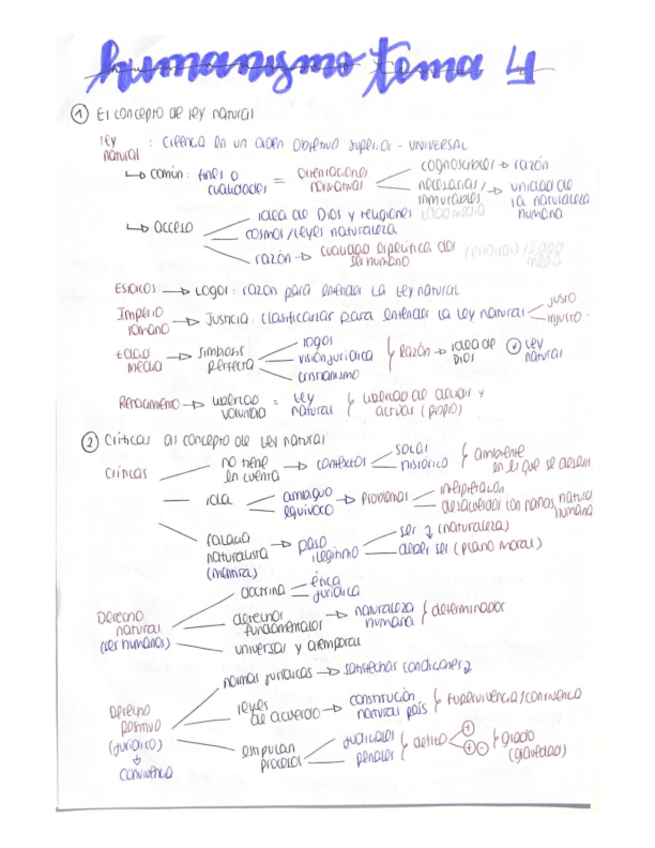 humanismo tema 4
① El concepto de ley natural
ley natural : creencia en un orden objetivo superior - UNIVERSAL
↳ común: fines o cualidades = orientaciones normativas
cognoscibles → razón
necesarias/inmutables → unidad de la naturaleza humana
↳ acceso
idea de Dios y religiones edad media
cosmos/leyes naturaleza
razón → cualidad específica del ser humano (estoicos)
Estoicos → Logos: razón para entender la ley natural
Imperio romano → Justicia: clasificarlas para entender la ley natural
justo
injusto
edad media → simbiosis perfecta
logos
visión jurídica
cristianismo
razón → idea de Dios ley natural
Renacimiento → libertad voluntad = ley natural
② Críticas al concepto de ley natural
Críticas
no tiene en cuenta → contextos
social
histórico
ambiente en el que se
idea
ambiguo
equívoco
→ problemas
interpretación
falacia naturalista
→ paso ilegítimo
ser (naturaleza)
deber ser (plano moral)
Derecho natural (ser humanos)
doctrina
ética
jurídica
derechos fundamentales → naturaleza humana determinador
universal y atemporal
Derecho positivo (jurídico)
↓
convivencia
normas jurídicas → satisfechas condiciones
leyes de acuerdo → constitución natural país supervivencia/convivencia
estipulan procesos
judiciales
penales
delito
+
+ -
grado (gravedad)